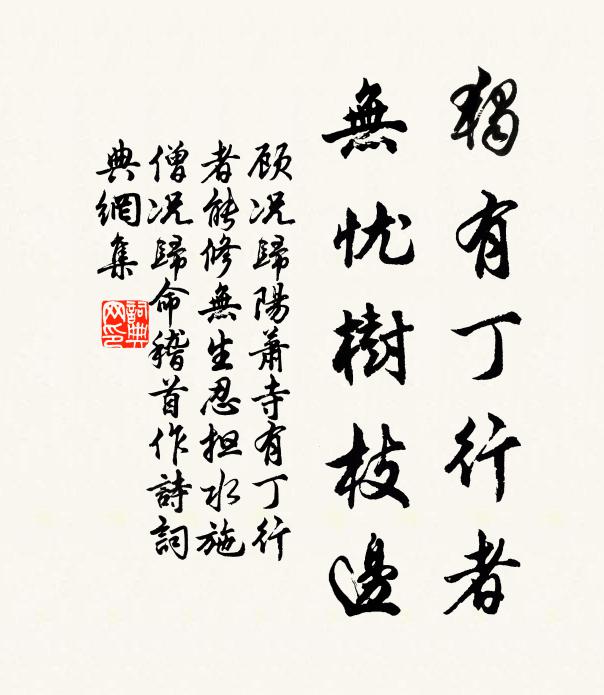 獨有丁行者
無忧樹枝邊
顾况歸陽蕭寺有丁行
者能修無生忍担水施
僧况歸命稽首作詩詞
典網集
詞典
网印